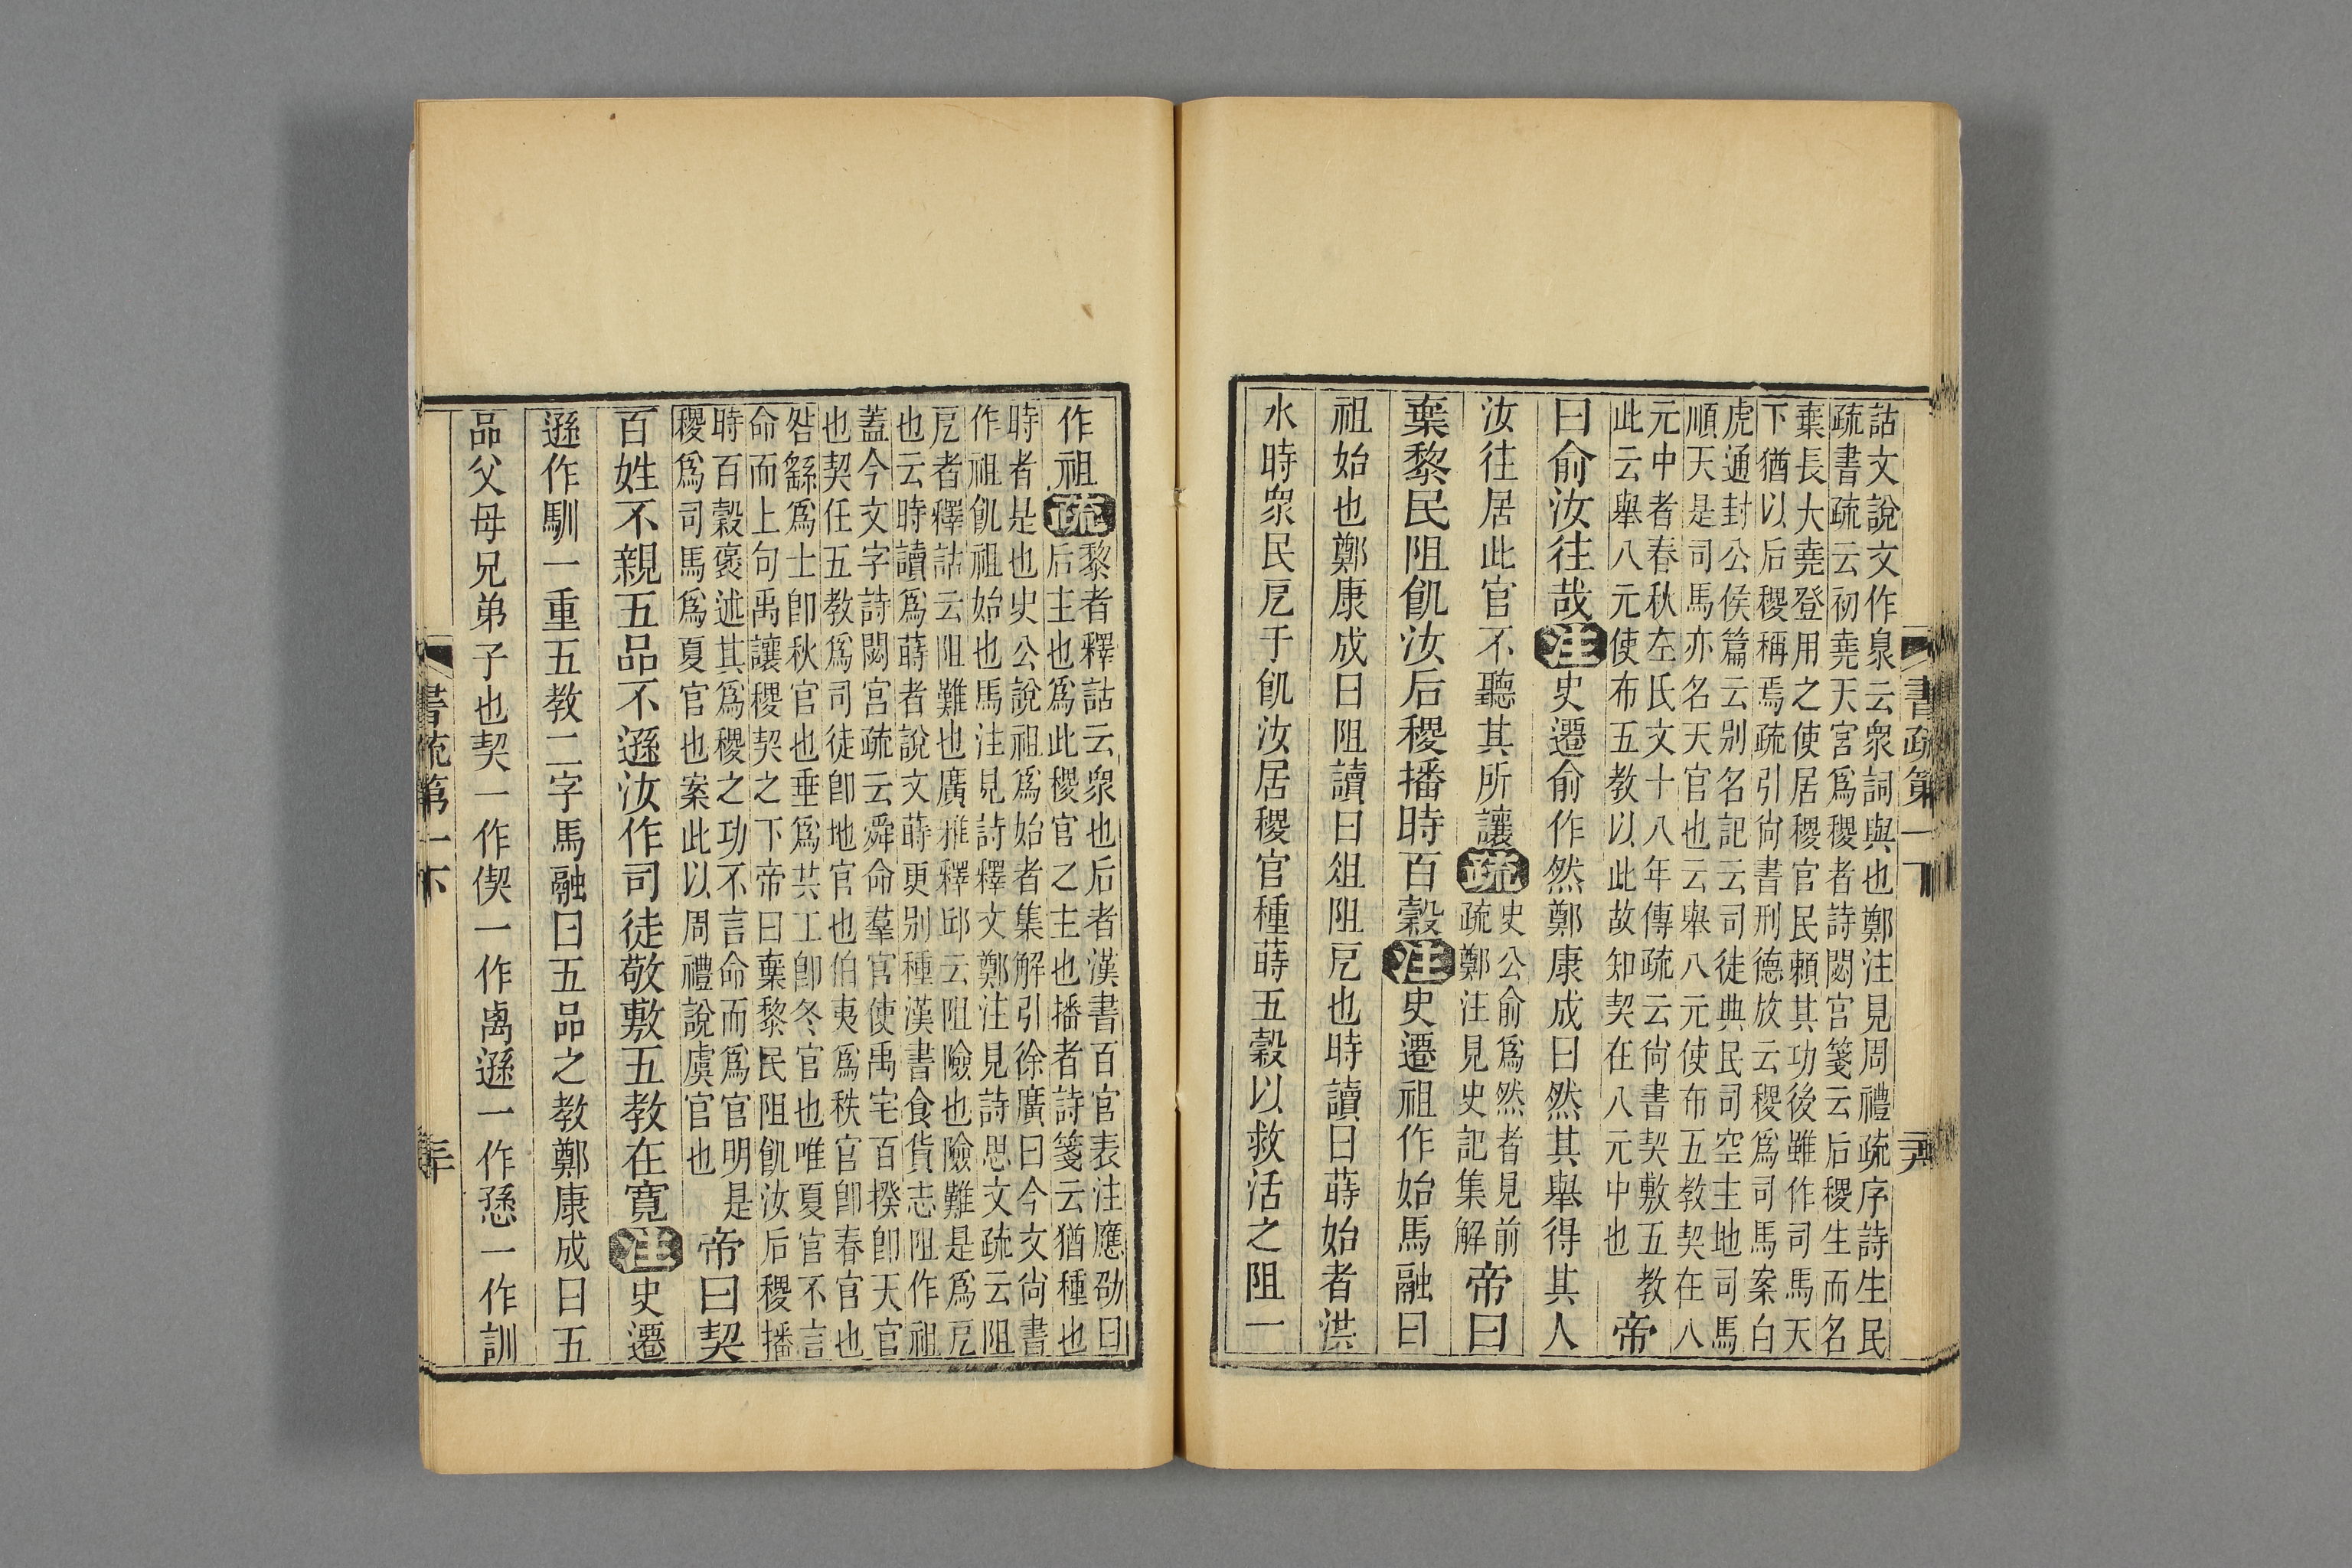 詁文說文作臮云衆詞與也鄭注見周禮疏序詩生民
疏書疏云初堯天官爲稷者詩閟宮箋云后稷生而名
棄長大堯登用之使居稷官民賴其功後雖作司馬天
下猶以后稷稱焉疏引尙書刑德放云稷爲司馬案白
虎通封公侯篇云别名記云司徒典民司空主地司馬
順天是司馬亦名天官也云舉八元使布五教契在八
元中者春秋左氏文十八年傳疏云尙書契敷五教
此云舉八元使布五教以此故知契在八元中也
帝
曰俞汝往哉注史遷俞作然鄭康成曰然其舉得其人
汝往居此官不聽其所讓疏
史公俞爲然者見前
疏鄭注見史記集解
帝曰
棄黎民阻飢汝后稷播時百穀注史遷祖作始馬融曰
祖始也鄭康成曰阻讀曰俎阻戹也時讀曰蒔始者洪
水時衆民戹于飢汝居稷官種蒔五穀以救活之阻一
書疏第一下
作祖疏
黎者釋詁云衆也后者漢書百官表注應劭曰
后主也爲此稷官之主也播者詩箋云猶種也
時者是也史公說祖爲始者集解引徐廣曰今文尙書
作祖飢祖始也馬注見詩釋文鄭注見詩思文疏云阻
戹者釋詁云阻難也廣雅釋邱云阻險也險難是爲戹
也云時讀爲蒔者說文蒔更别種漢書食貨志阻作祖
蓋今文字詩閟宮疏云舜命羣官使禹宅百揆卽天官
也契任五教爲司徒卽地官也伯夷爲秩官卽春官也
咎繇爲士卽秋官也垂爲共工卽冬官也唯夏官不言
命而上句禹讓稷契之下帝曰棄黎民阻飢汝后稷播
時百穀褒述其爲稷之功不言命而爲官明是
稷爲司馬爲夏官也案此以周禮說虞官也
帝曰契
百姓不親五品不遜汝作司徒敬敷五教在寬注史遷
遜作馴一重五教二字馬融曰五品之教鄭康成曰五
品父母兄弟子也契一作偰一作卨遜一作愻一作訓
書疏第一下
三十